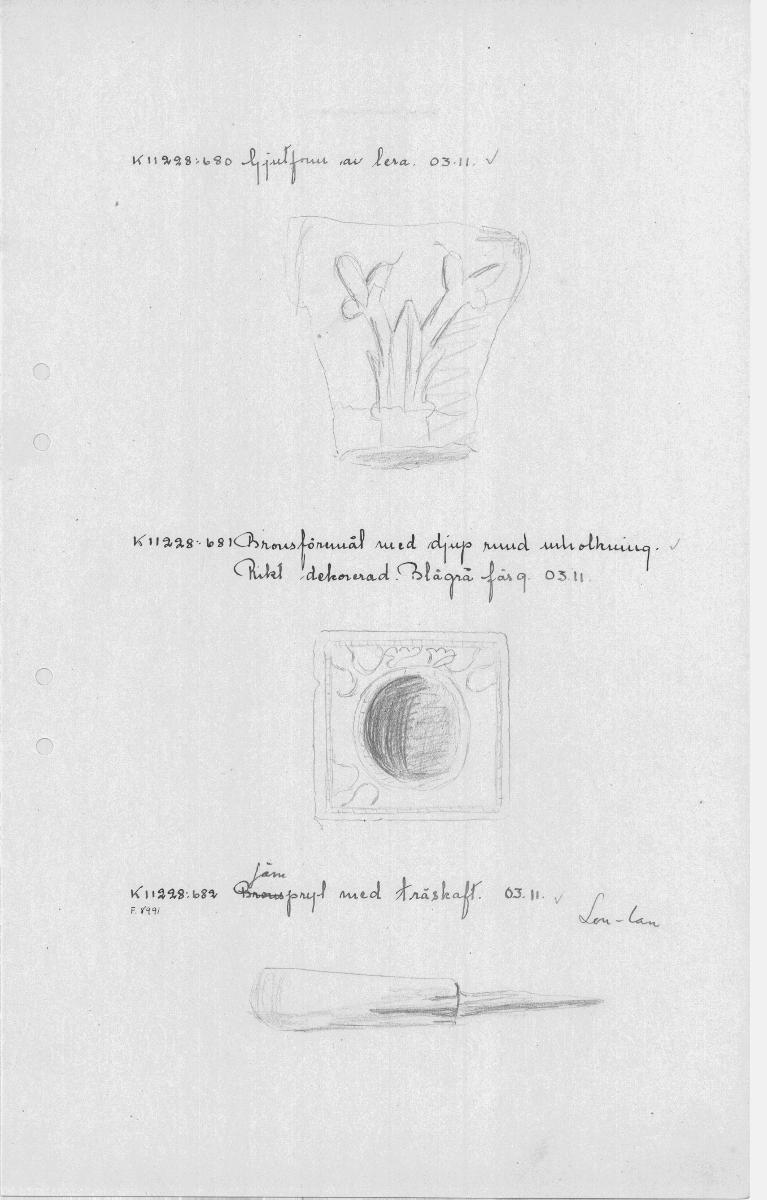 K11228:680 Gjutform av lera. 03.11. ✓
K11228:681 Bronsföremål med djup rund urholkning. ✓
Rikt dekorerad. Blågrå färg. 03.11.
järn
K11228:682 Bronspryl med träskaft. 03.11. ✓
Lou-lan